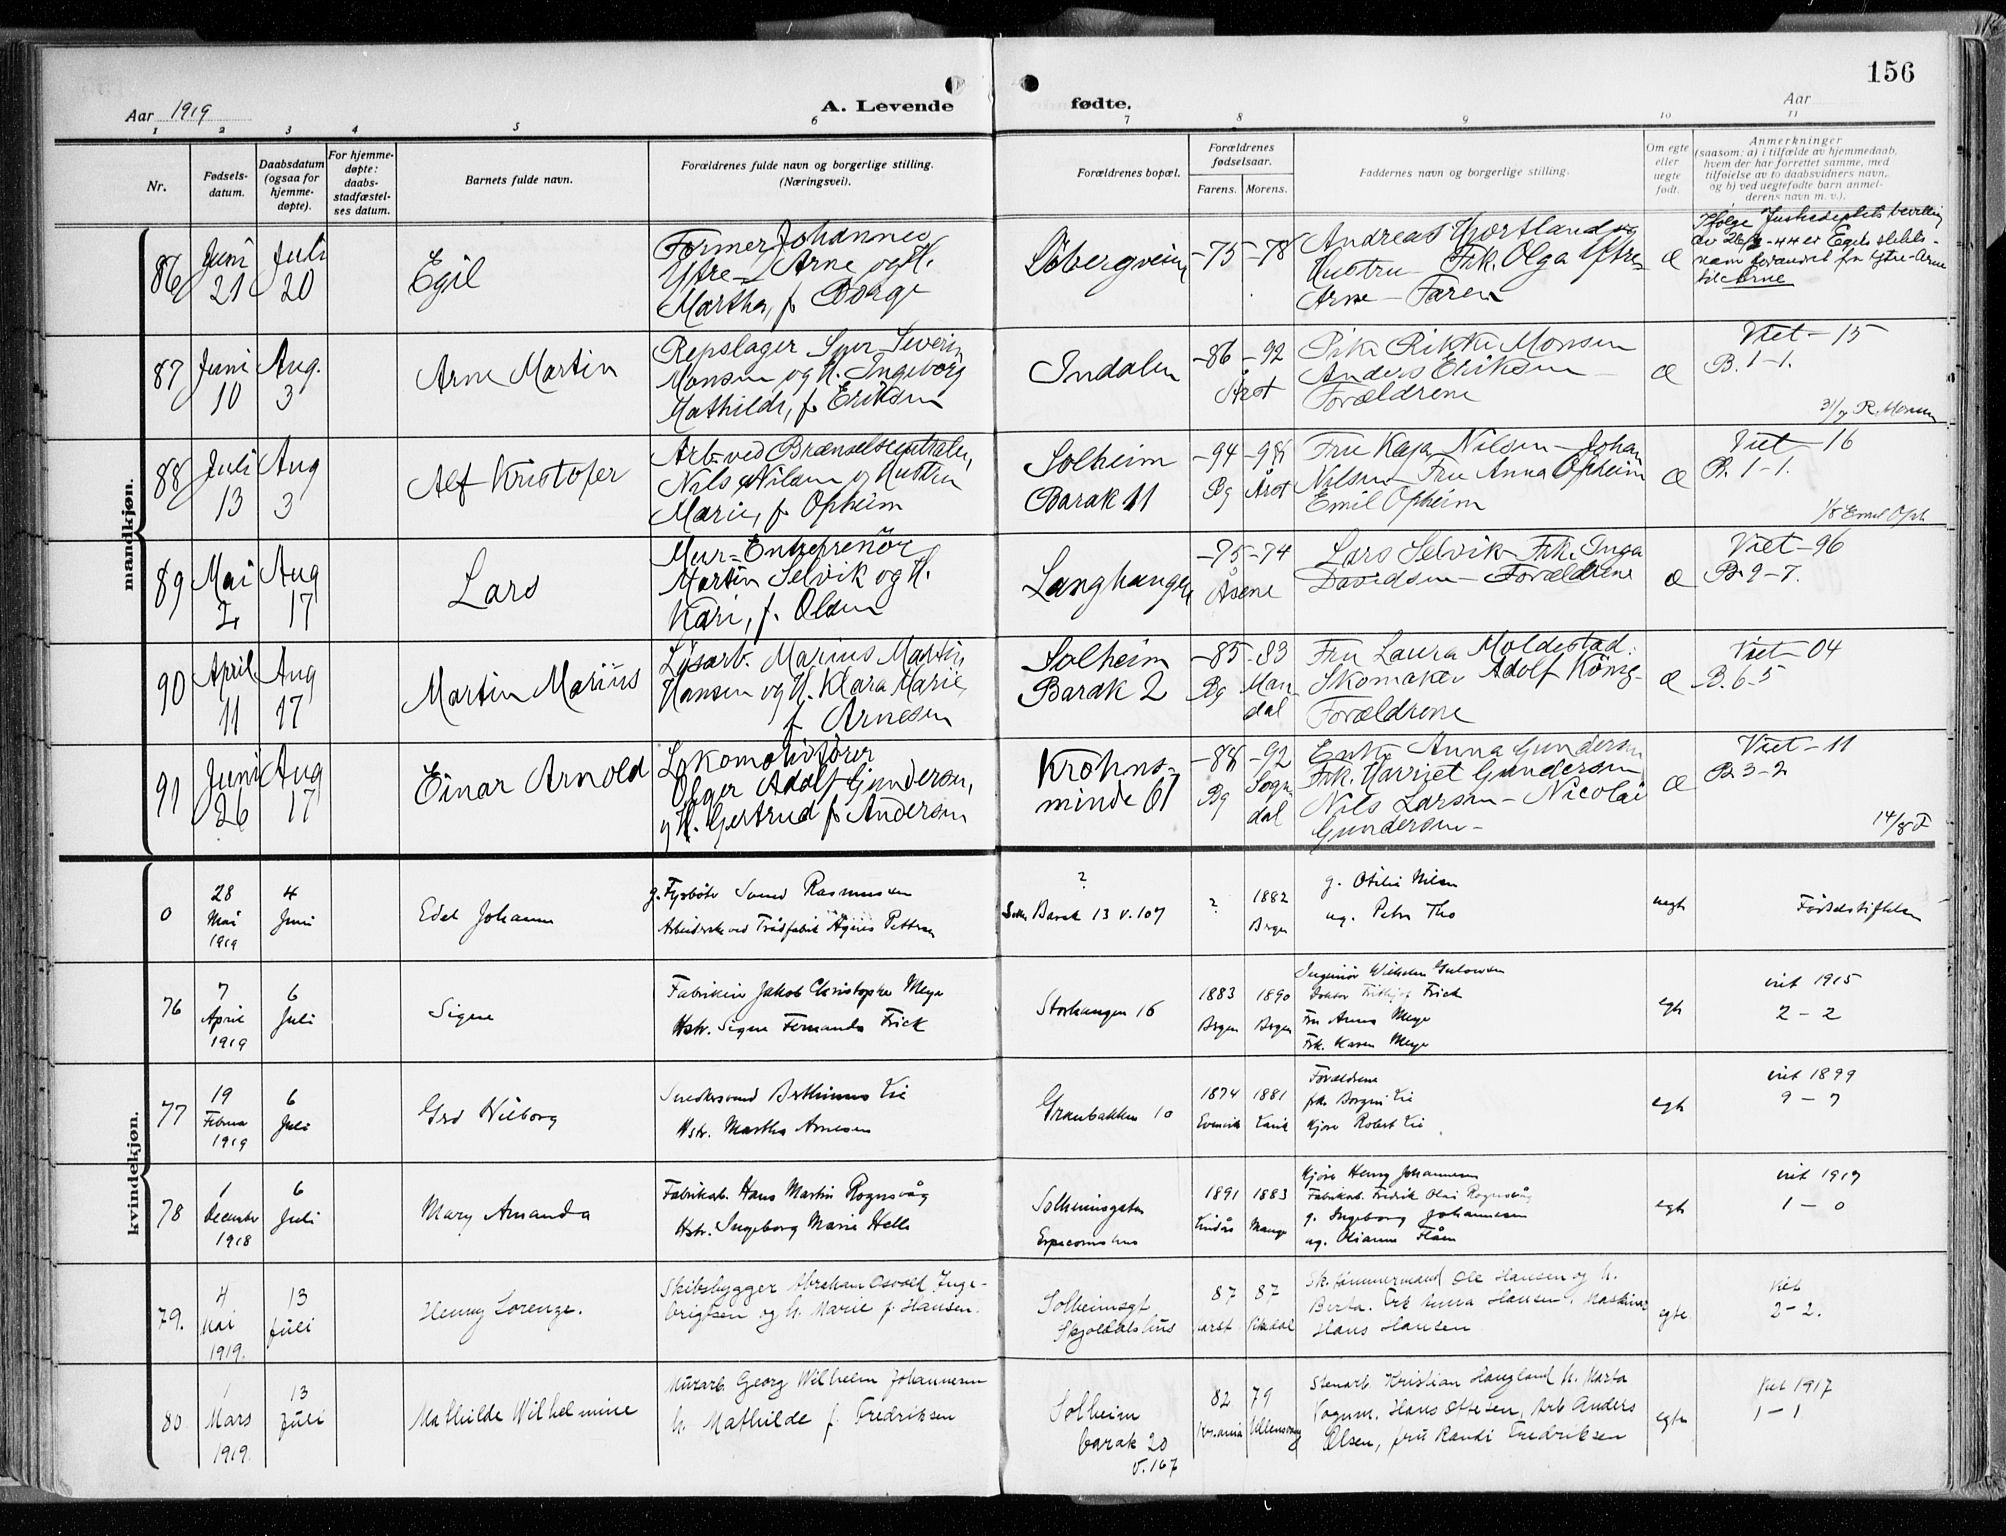 156
Aar 1919
A. Levende fødte.
Aar
1 2 3 4 5 6 7 8 9 10 11
Nr.
Fødsels-
datum.
Daabsdatum
(ogsaa for
hjemme-
døpte).
For hjemme-
døpte:
daabs-
stadfæstel-
ses datum.
Barnets fulde navn.
Forældrenes fulde navn og borgerlige stilling.
(Næringsvei).
Forældrenes bopæl.
Forældrenes
fødselsaar.
Farens. Morens.
Faddernes navn og borgerlige stilling.
Om egte
eller
uegte
født.
Anmerkninger
(saasom: a) i tilfælde av hjemmedaab,
hvem der har forrettet samme, med
tilføielse av to daabsvidners navn,
og b) ved uegtefødte barn anmel-
derens navn m. v.).
mandkjøn.
86
Juni
21
Juli
20
Egil
Former Johannes
Ytre-Arne og H.
Martha, f. Borge
-75 -78
Andreas Hjortland og
Hustru - Frk. Olga Ytre-
Arne - Faren
æ
Ifølge Justisdeptets bevilling
er Egils slekts-
navn forandret fra Ytre-Arne
til Arne
87
Juni
10
Aug.
3
Arne Martin
Repslager Iver Severin
Monsen og H. Ingeborg
Mathilde, f. Eriksen
Indalen
-86 -92
Årst
Pike Rikke Monsen
Anders Eriksen -
Forældrene
æ
Viet - 15
B. 1-1.
31/7 R. Monsen
88
Juli
13
Aug
3
Alf Kristofer
Arb. ved Brænselscentralen,
Nils Nilsen og Hustru
Marie, f. Opheim
Solheim
Barak 11
-94 -98
Bg Årst
Fru Kaja Nilsen - Johan
Nilsen - Fru Anna Opheim
Emil Opheim
æ
Viet - 16
B. 1-1.
1/8 Emil Oph.
89
Mai
2
Aug
17
Lars
Mur-Entreprenør
Martin Selvik og H.
Kari, f. Olsen
Langhaugen
-75 -74
Åsene
Lars Selvik - Frk. Inga
Davidsen - Forældrene
æ
Viet - 96
B. 9-7.
90
April
11
Aug
17
Martin Marius
Løsarb. Marius Martin
Hansen og H. Klara Marie,
f. Arnesen
Solheim
Barak 2
-85 -83
Bg Man-
dal
Fru Laura Moldestad.
Skomaker Adolf König -
Forældrene
æ
Viet - 04
B. 6-5
91
Juni
26
Aug
17
Einar Arnold
Lokomotivfører
Olger Adolf Gundersen,
og H. Gertrud f. Andersen
Krohns-
minde 61
-88 -92
Bg Sogn-
dal
Enke Anna Gundersen
Frk. Harriet Gundersen
Nils Larsen - Nicolai
Gundersen -
æ
Viet - 11
B. 3-2
14/8 F
kvindekjøn.
0
28
Mai
1919
4
Juni
Edel Johanne
g. Fyrbøter Rasmussen
Arbeiderske ved Trådfabrik Agnes Pettersen
?
Barak 13 v. 107
?
1882
Bergen
g. Otilie Nilsen
ug. Peter Tho
uegte
Fødselsstiftelsen
76
7
April
1919
6
Juli
Signe
Fabrikeier Jakob Christopher Meyer
Hstr. Signe Fernanda Frick
Storhaugen 16
1883 1890
Bergen Bergen
Ingeniør Wilhelm
Doktor Fridtjof Frick
Fru Anna Meyer
Frk. Karen Meyer
egte
viet 1915
2 - 2
77
19
Februar
1919
6
Juli
Gro Wilborg
Berthinus Lie
Hstr. Martha Arnesen
Granbakken 10
1874 1881
Evenvik
Forældrene
frk. Borgny Lie
Kjøre Robert Lie
egte
viet 1899
9 - 7
78
1
December
1918
6
Juli
Mary Amanda
Fabrikarb. Hans Martin Rognsvåg
Hstr. Ingeborg Marie Helle
Solheimsgaten
1891 1883
Lindås Manger
Kjøre Henry Johannesen
Fabrikarb. Fredrik Olai Rognsvåg
g. Ingeborg Johannesen
ug. Olianne Flåm
egte
viet 1917
1 - 0
79.
4
Mai
1919.
13
Juli
Henny Lorenze.
Skibsbygger Abraham Osvald Inge-
brigtsen og h. Marie f. Hansen.
Solheimsgt
Skjoldals hus
87 87
Årst.
Sk. tømmermand Ole Hansen og h.
Berta. Frk Anna Hansen. Maskinar
Hans Hansen
egte
Viet
2-2.
80
1
Mars
1919.
13
Juli
Mathilde Wilhelmine
Murarb. Georg Wilhelm Johannesen
h. Mathilde f. Fredriksen
Solheim
barak 20
v. 167
82 79
Kr.ania Ullensvang
Stenarb. Kristian Haugland h. Marta
Vognm. Hans Ottesen, Arb Anders
Olsen, fru Randi Fredriksen
egte
Viet 1917
1-1